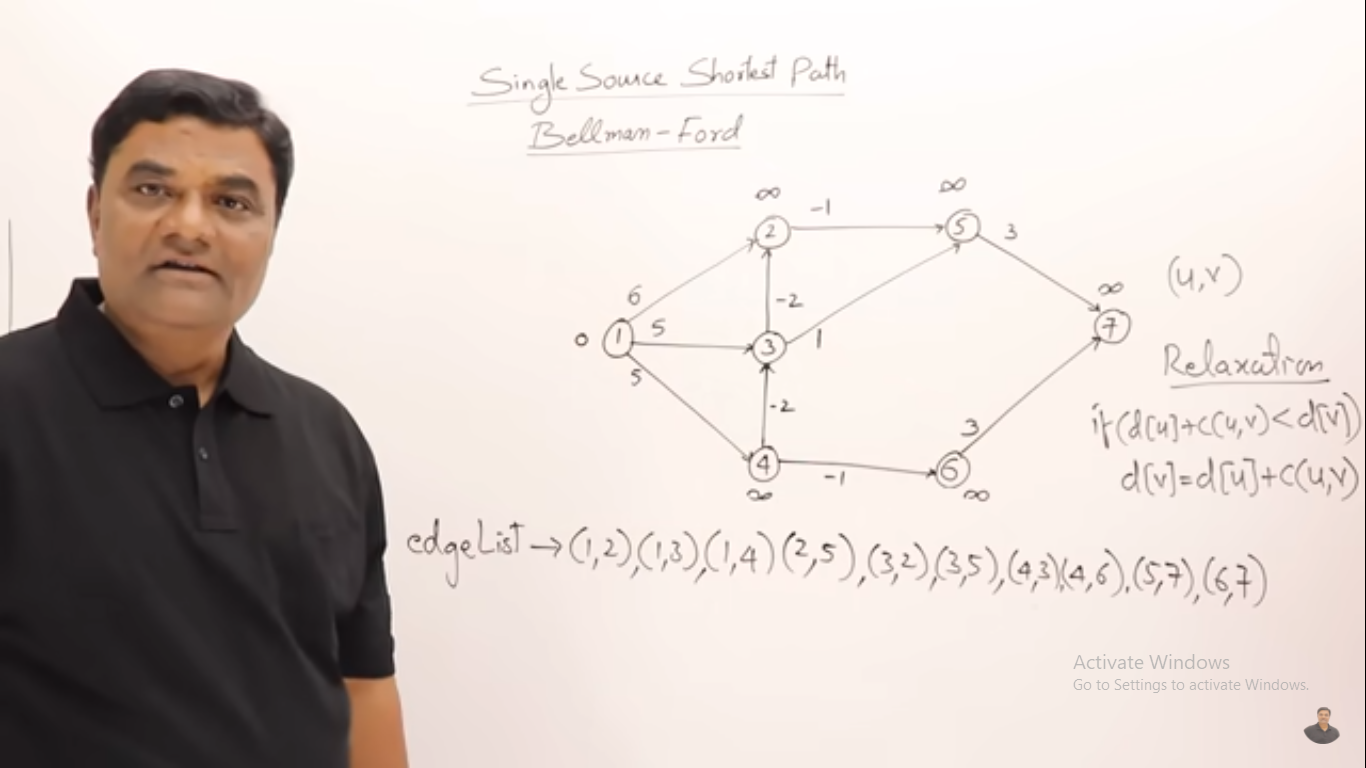 Single Source Shortest Path
Bellman-Ford
∞ ∞
2 -1 5 3
(u,v)
∞
6 -2 7
0 1 5 3 1
Relaxation
5
-2
if(d[u]+c(u,v)<d[v])
3
d[v]=d[u]+c(u,v)
4 -1 6
∞ ∞
edgeList→(1,2),(1,3),(1,4)(2,5),(3,2),(3,5),(4,3)(4,6),(5,7),(6,7)
Activate Windows
Go to Settings to activate Windows.